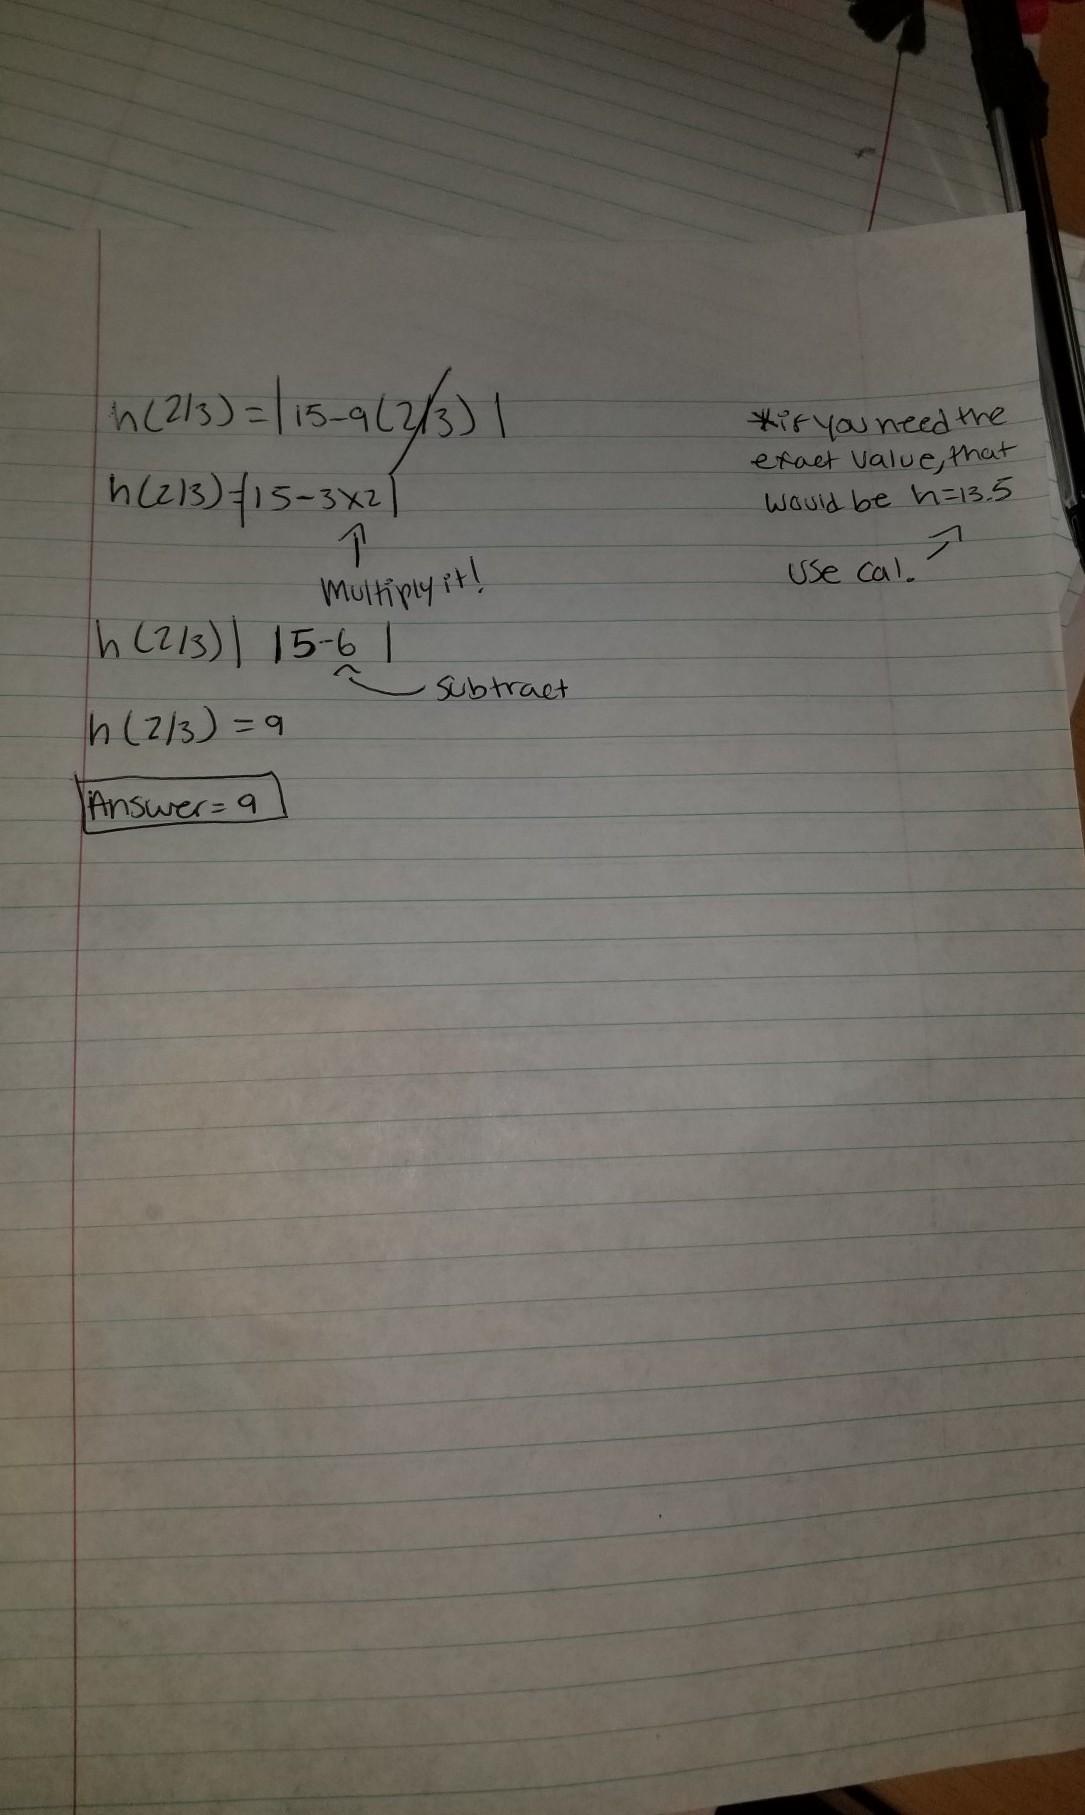 h(2/3)=|15-9(2/3)|
h(2/3)=|15-3×2|
Multiply it!
h(2/3)| 15-6 |
subtract
h(2/3)=9
Answer=9
*if you need the
exact value, that
would be h=13.5
use cal.